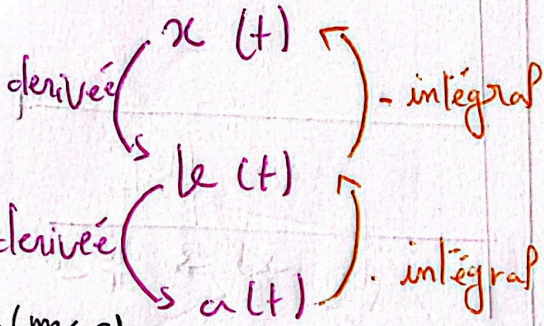 x (t)
derivée
- intégral
v (t)
derivée
. intégral
a (t)